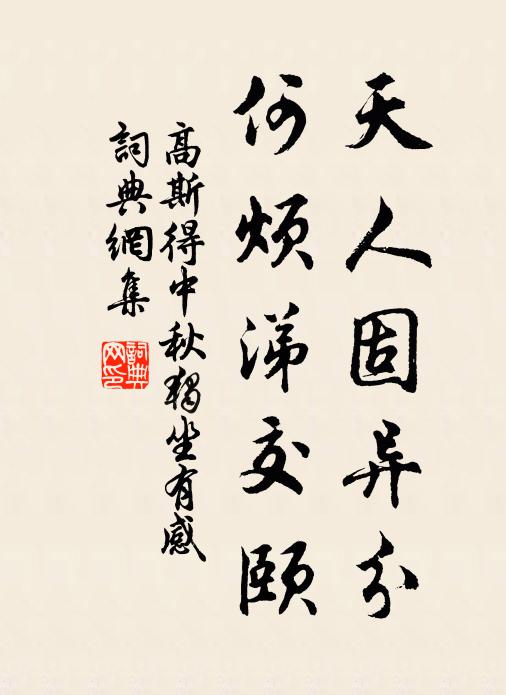 天人固异分
何烦涕交颐
高斯得中秋独坐有感
詞典網集
詞典網印